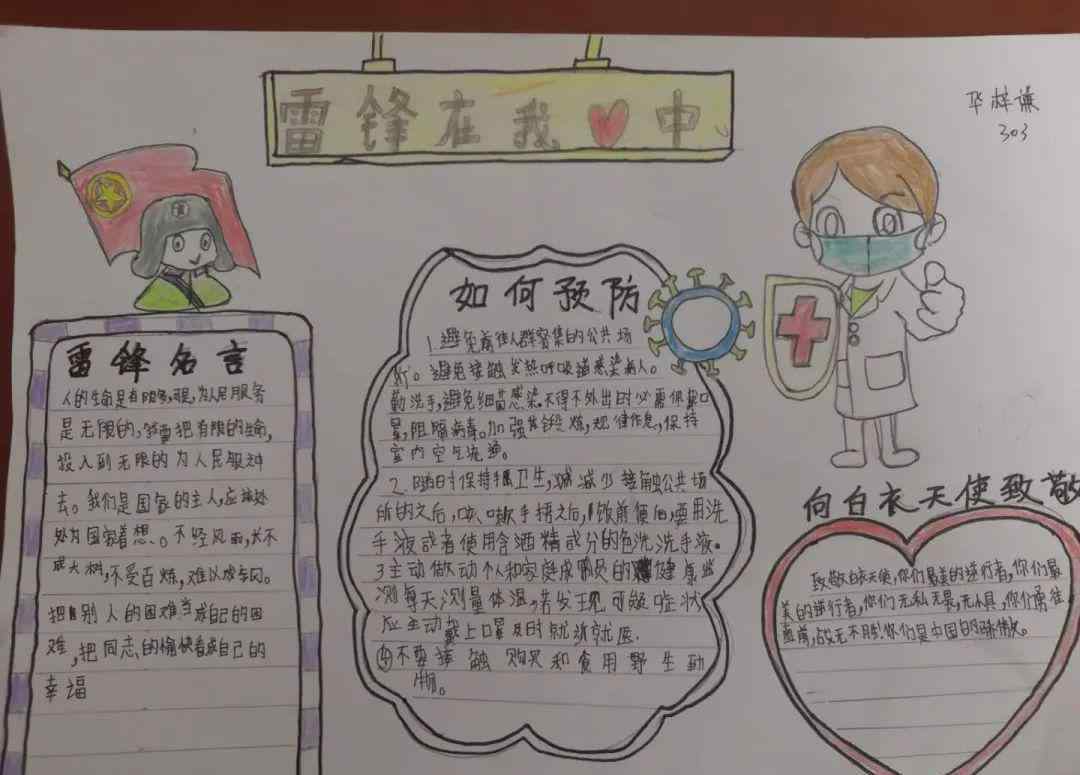 雷锋在我中
华梓谦
303
雷锋名言
人的生命是有限的,可是,为人民服务
是无限的,我要把有限的生命,
投入到无限的为人民服务中
去。我们是国家的主人,应该处
处为国家着想。不经风雨,长不
成大树,不受百炼,难以成钢。
把别人的困难当成自己的困
难,把同志的愉快看成自己的
幸福
如何预防
1.避免前往人群密集的公共场
所。避免接触发热呼吸道感染病人。
勤洗手,避免细菌感染.不得不外出时必需佩戴口
罩,阻隔病毒。加强锻炼,规律作息,保持
室内空气流通。
2.随时保持手卫生,减少接触公共场
所的之后,咳嗽手捂之后,饭前便后,要用洗
手液或者使用含酒精成分的免洗洗手液。
3主动做动个人和家庭成员的健康监
测每天测量体温,若发现可疑症状
应主动戴上口罩及时就诊就医.
④不要接触购买和食用野生动
物。
向白衣天使致敬
致敬白衣天使,你们最美的逆行者,你们最
美的逆行者,你们无私无畏,无小惧,你们勇往
直前,战无不胜,你们是中国的骄傲。